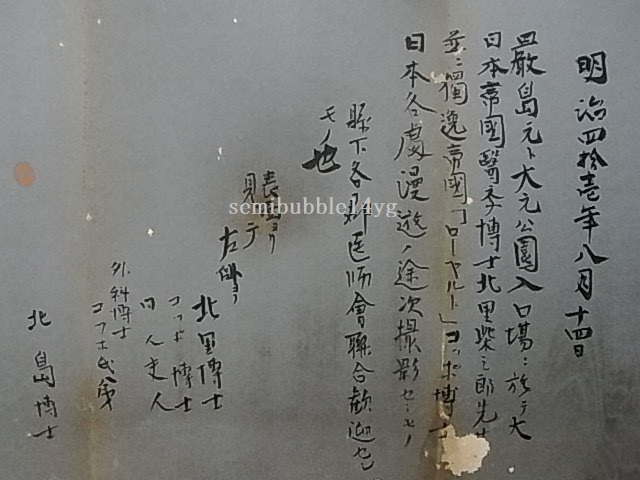 明治四拾壱年八月十四日
嚴島元ト大元公園入口場ニ於テ大
日本帝國醫学博士北里柴三郎先生
並ニ獨逸帝國「ローベルト」コッホ博士
日本各處漫遊ノ途次撮影セシモノ
縣下各郡医師會聯合歓迎セシ
モノ也
表ヨリ
見テ
左側ヨリ
北里博士
コッホ博士
同人夫人
外科博士
コフ士氏第
北島博士
semibubble14yg